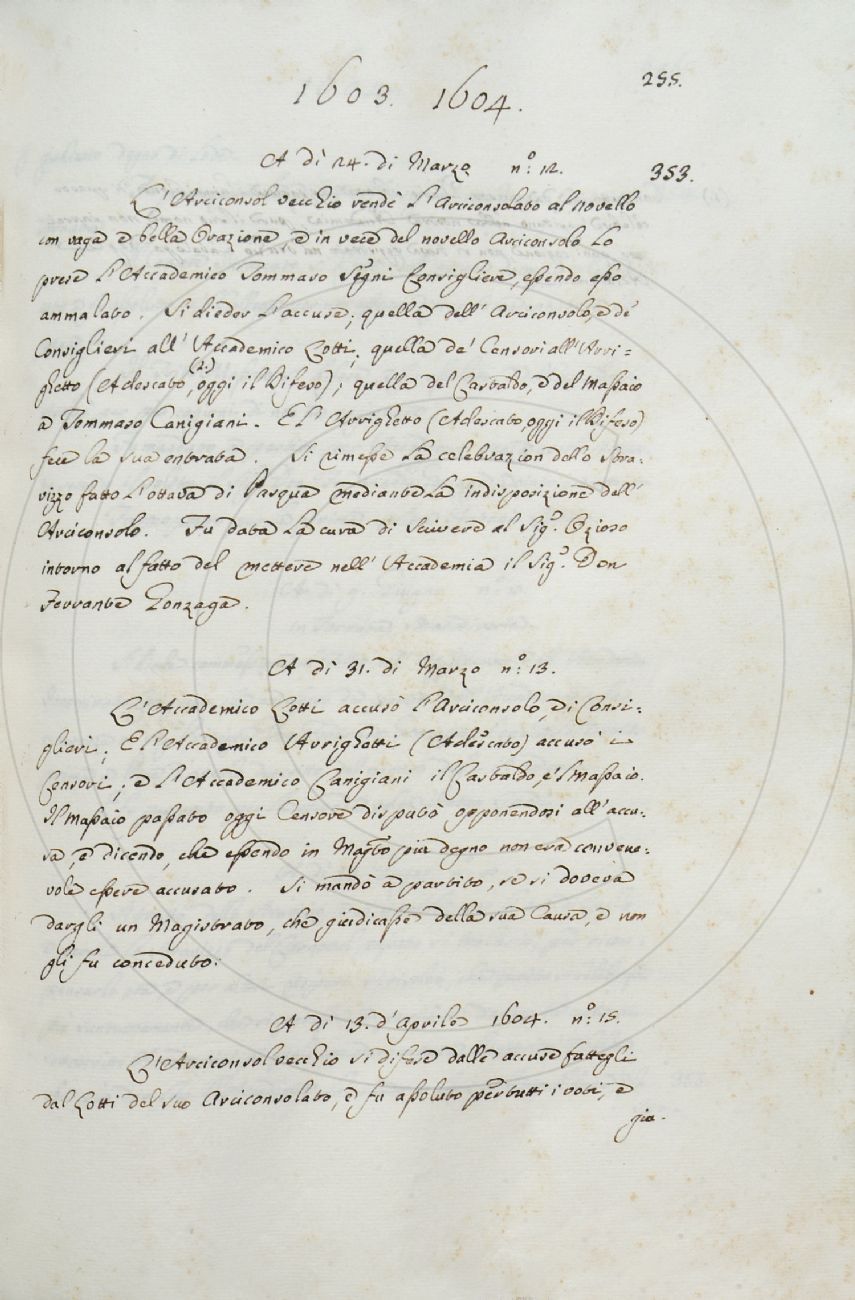 255.
1603. 1604.
A dì 24. di Marzo nº: 12.
353.
L'Arciconsol vecchio rendè l'Arciconsolato al novello
con vaga e bella Orazione, e in vece del novello Arciconsolo lo
prese l'Accademico Tommaso Segni Consigliere, essendo esso
ammalato. Si dieder l'accuse; quella dell'Arciconsolo, e de'
Consiglieri all'Accademico Lotti; quella de' Censori all'Arri=
ghetto (Adescato, oggi il Difeso); quella del Castaldo, e del Massaio
(2.)
a Tommaso Canigiani. E l'Arrighetto (Adescato, oggi il Difeso)
fece la sua entrata. Si rimesse la celebrazion dello Stra=
vizzo fatto l'ottava di Pasqua mediante la indisposizione dell'
Arciconsolo. Fu data la cura di scrivere al Sigº. Ozioso
intorno al fatto del mettere nell'Accademia il Sigº. Don
Ferrante Gonzaga.
A dì 31. di Marzo nº: 13.
L'Accademico Lotti accusò l'Arciconsolo, e i Consi=
glieri; E l'Accademico Arrighetti (Adescato) accusò i
Censori; e l'Accademico Canigiani il Castaldo, e 'l Massaio.
Il Massaio passato oggi Censore disputò opponendosi all'accu=
sa, e dicendo, che essendo in Magto più degno non era convene=
vole essere accusato. Si mandò a partito, se si doveva
dargli un Magistrato, che giudicasse della sua Causa, e non
gli fu conceduto:
A dì 13. d'Aprile 1604. nº: 15.
L'Arciconsol vecchio si difese dalle accuse fattegli
dal Lotti del suo Arciconsolato, e fu assoluto per tutti i voti, e
gia.